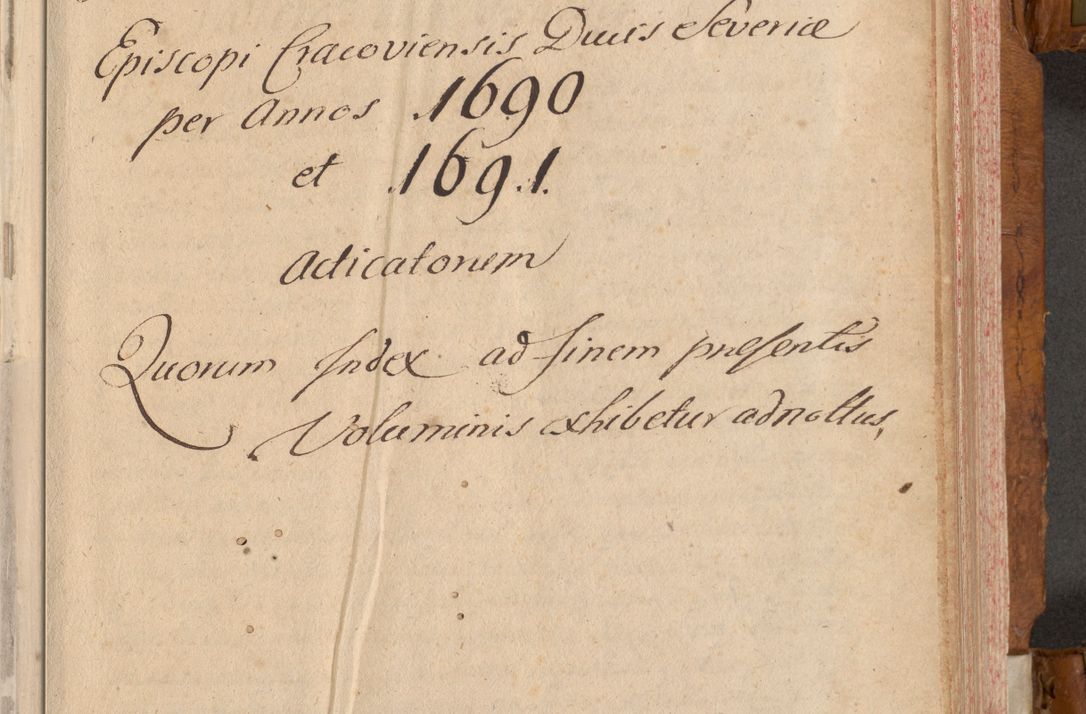 Episcopi Cracoviensis Ducis Severiæ
per Annos 1690
et 1691.
Acticatorum
Quorum Index ad finem præsentis
Voluminis exhibetur adnottus,